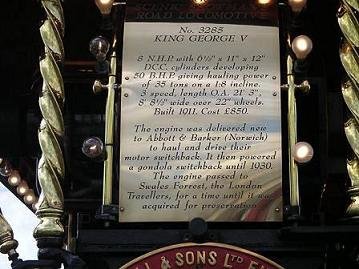 SCENIC SHOWMAN'S
ROAD LOCOMOTIVE
No. 3285
KING GEORGE V
8 N.H.P. with 6½" x 11" x 12"
D.C.C. cylinders developing
50 B.H.P. giving hauling power
of 35 tons on a 1:8 incline.
3 speed, length O.A. 21' 3",
8' 8½" wide over 22" wheels.
Built 1911. Cost £850.
The engine was delivered new
to Abbott & Barker (Norwich)
to haul and drive their
motor switchback. It then powered
a gondola switchback until 1930.
The engine passed to
Swales Forrest, the London
Travellers, for a time until it was
acquired for preservation
& SONS LTD